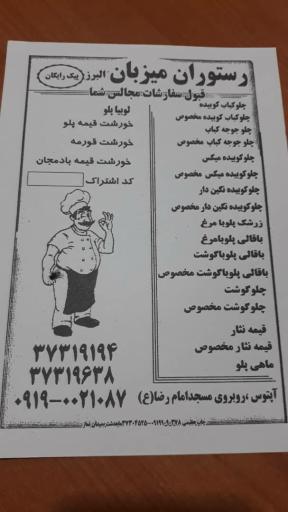 رستوران میزبان البرز پیک رایگان
قبول سفارشات مجالس شما
چلوکباب کوبیده
چلو کباب کوبیده مخصوص
چلو جوجه کباب
چلو جوجه کباب مخصوص
چلوکوبیده میکس
چلوکوبیده میکس مخصوص
چلوکوبیده نگین دار
چلوکوبیده نگین دار مخصوص
زرشک پلوبا مرغ
باقالی پلوبامرغ
باقالی پلوباگوشت
باقالی پلوباگوشت مخصوص
چلوگوشت
چلوگوشت مخصوص
قیمه نثار
قیمه نثار مخصوص
ماهی پلو
لوبیا پلو
خورشت قیمه پلو
خورشت قورمه
خورشت قیمه بادمجان
کد اشتراک:
۳۷۳۱۹۱۹۴
۳۷۳۱۹۶۳۸
۰۹۱۹-۰۰۲۱۰۸۷
آبتوس ،روبروی مسجدامام رضا(ع)